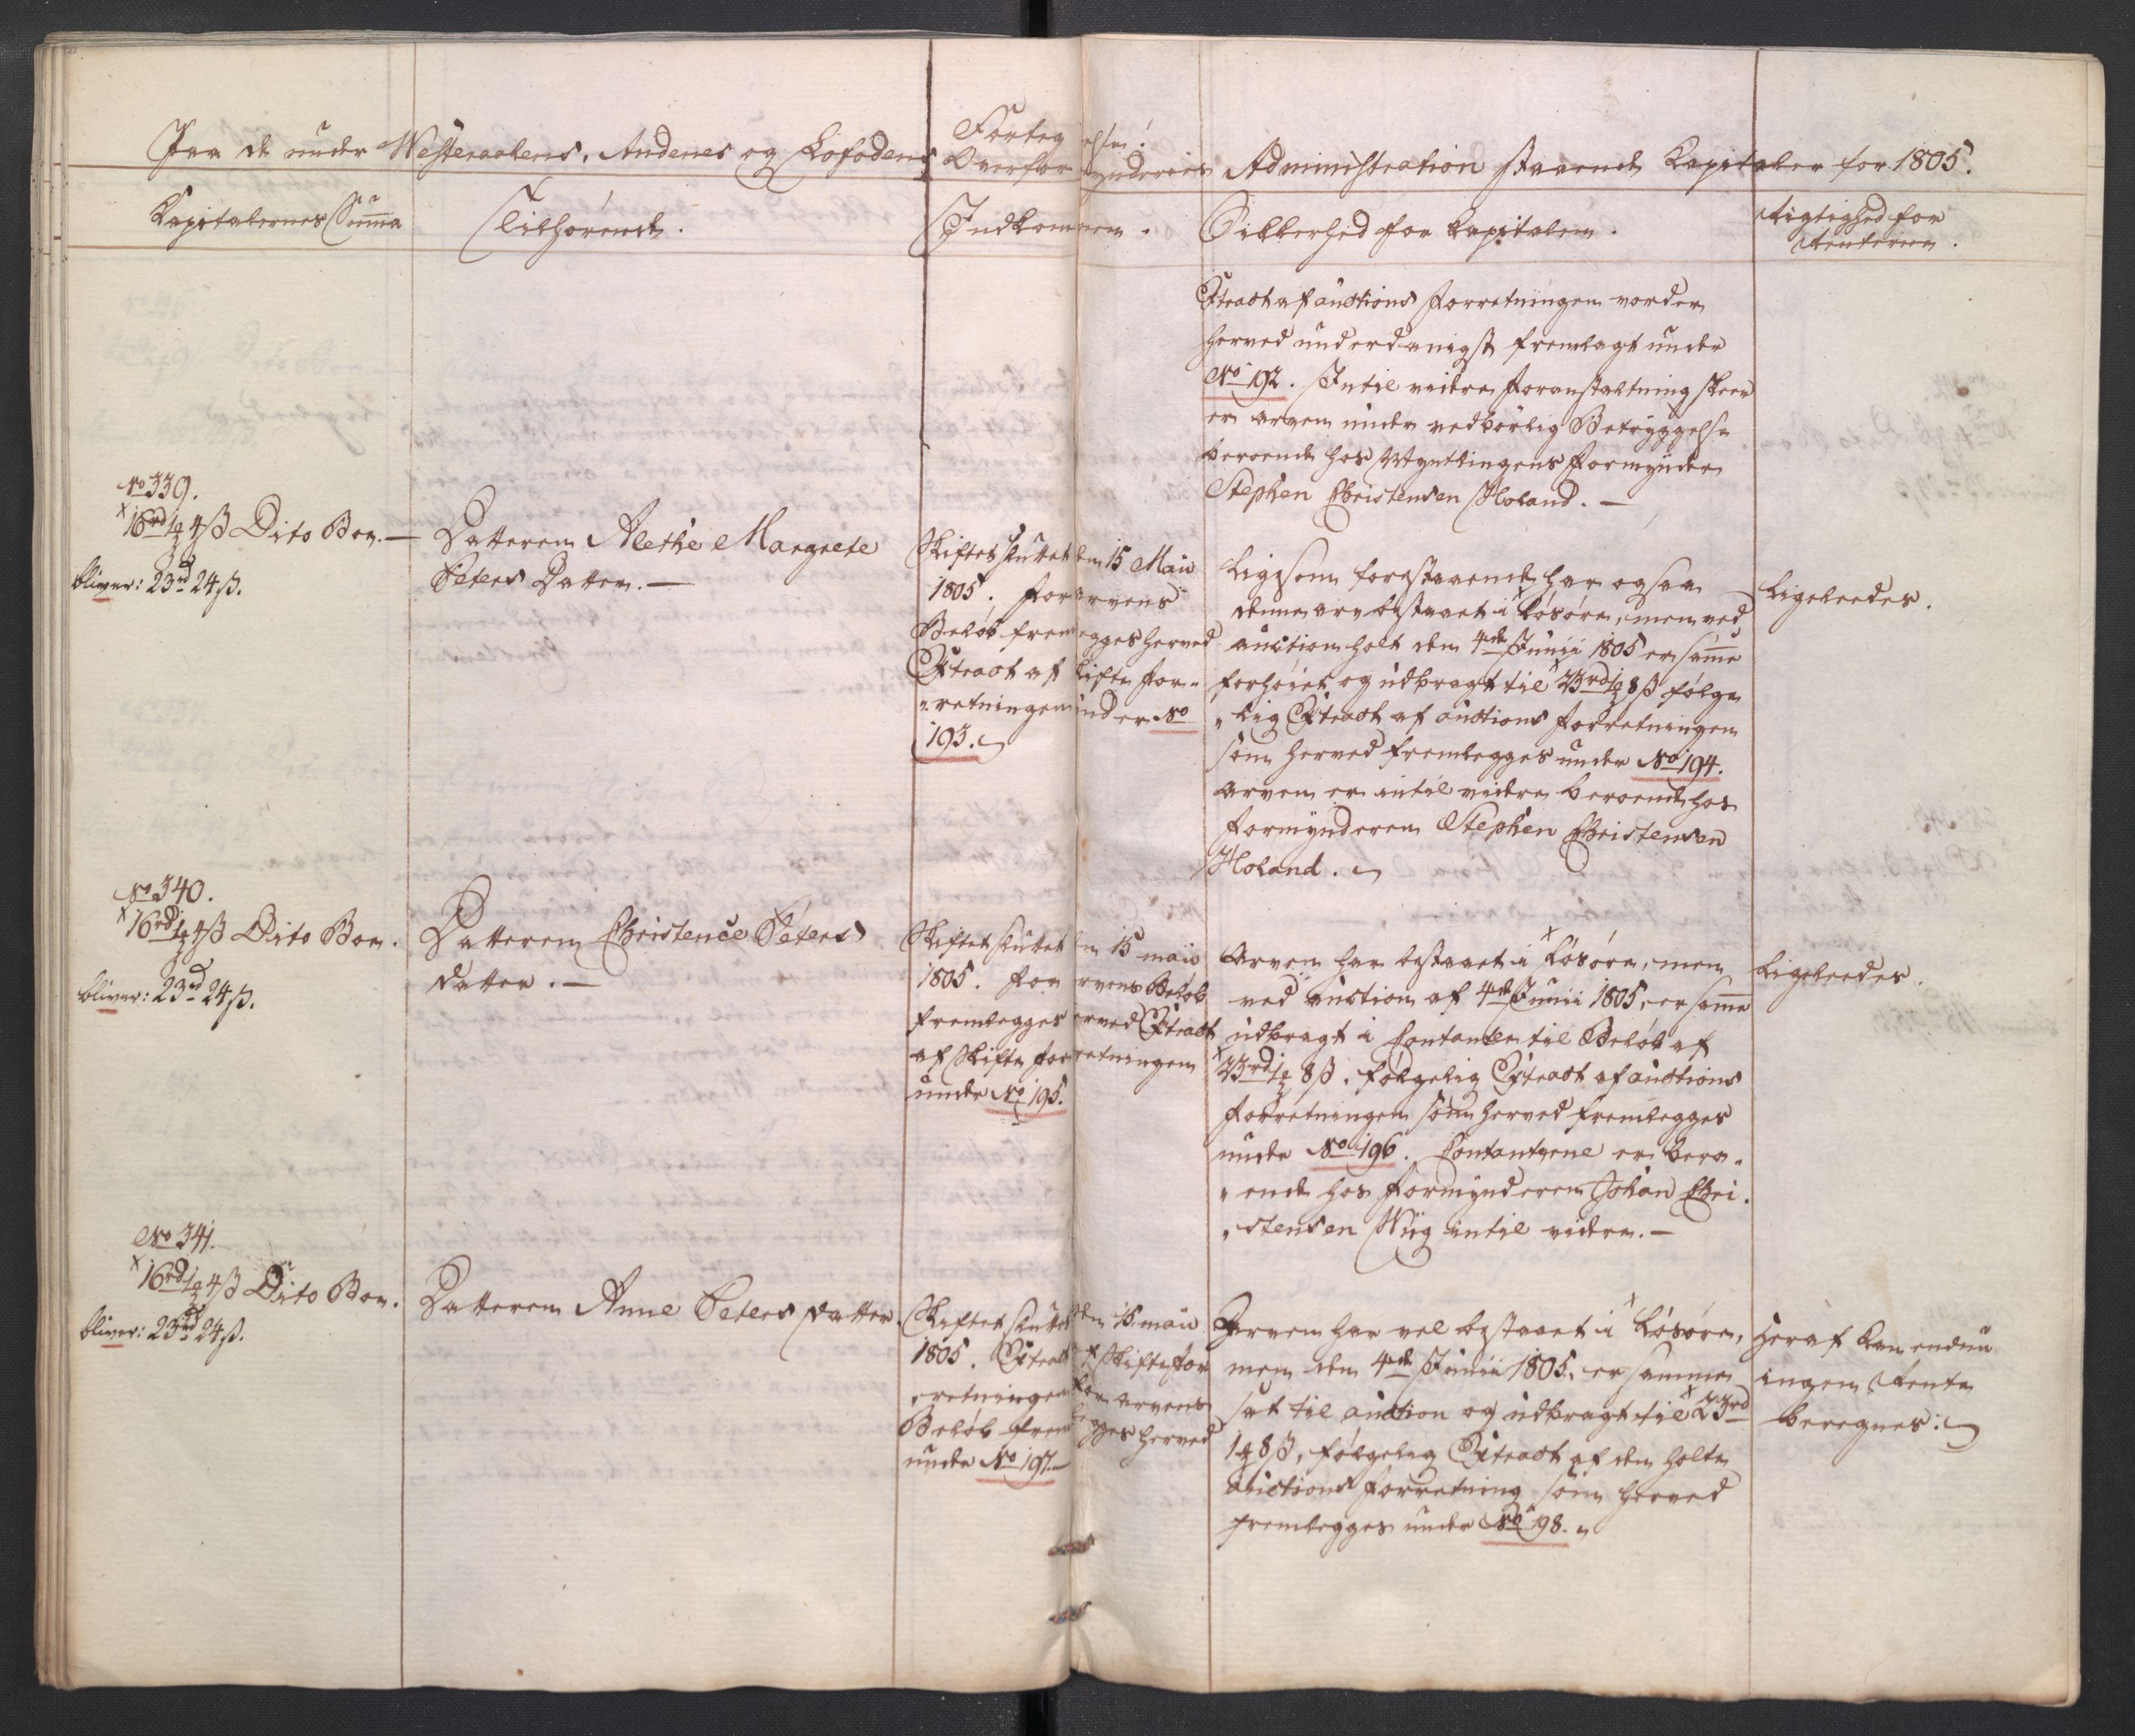 Forteg nelse
Paa de under Westeraalens, Andenes og Lofodens Overfor mynderies Administration staaende Kapitaler for 1805.
Kapitalernes Suma
Tilhørende.
Indkom men.
Sikkerhed for Kapitalen.
Rigtighed for
Renterne.
Extract af auctions Forretningen vorder
herved underdanigst fremlagt under
No 192. Intil videre foranstaltning skeer
er arven under vedbørlig Betryggelse
beroende hos Myndtlingens Formynder
Stephen Christensen Holand. —
No 339.
16rd 1 ₰ 4 ß Dito Boe. —
bliver: 23rd 24 ß.
Datteren Alethe Margrete
Peters Datter. —
Skiftet sluttet den 15 Maii
1805. For arvens
Beløb fremlegges herved
Extract af Skifte For-
retningen under No
193.
Ligesom forestaaende har ogsaa
denne arv bestaaet i Løsøre, men ved
auction holt den 4de Junii 1805 er same
forhøiet og udbragt til 23rd 1 ₰ 8 ß følge
lig Extract af auctions forretningen
som herved fremlegges under No 194.
arven er intil videre beroende hos
formynderen Stephen Christensen
Holand.
Ligeledes.
No 340.
16rd 1 ₰ 4 ß Dito Boe.
bliver: 23rd 24 ß.
Datteren Christence Peters
datter. —
Skiftet sluttet den 15 maii
1805. For arvens Beløb
fremlegges herved Extract
af Skifte Forretningen
under No 195.
Arven har bestaaet i Løsøre, men
ved auction af 4de Junii 1805, er same
udbragt i Contanter til Beløb af
23rd 1 ₰ 8 ß, følgelig Extract af auctions
Forretningen som herved fremlegges
under No 196. Contanterne er bero-
ende hos Formynderen Johan Chri-
stensen Wiig intil videre. —
Ligeledes.
No 341.
16rd 1 ₰ 4 ß Dito Boe.
bliver: 23rd 24 ß.
Datteren Anne Peters datter.
Skiftet sluttet den 15 maii
1805. Extract af Skifte for
retningen for arvens
Beløb fremlegges herved
under No 197. —
Arven har vel bestaaet i Løsøre,
men den 4de Junii 1805, er samme
sat til auction og udbragt til 23rd
1 ₰ 8 ß, følgelig Extract af den holte
auctions Forretning som herved
fremlegges under No 198.
Heraf kan endnu
ingen Rente
beregnes.